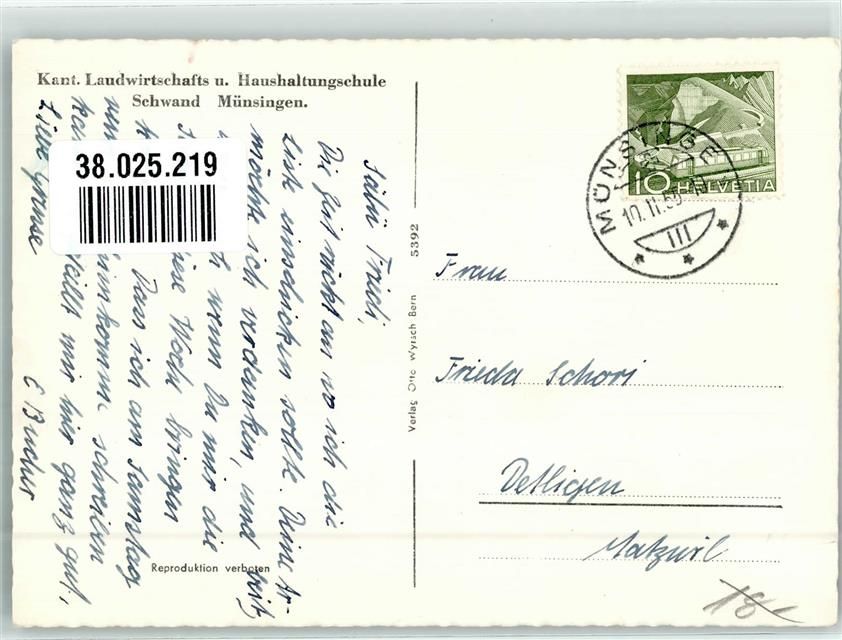 Kant. Landwirtschafts u. Haushaltungschule
Schwand Münsingen.
38.025.219
Sälü Friedi,
Die Zeit rückt an wo ich die
Liste einschicken sollte. Deine Ar-
möchte ich verdanken, und
wenn Du mir die
Woche bringen
Dass ich am Samstag
heimkomme schreiben
gefällt mir hier ganz gut,
Liebe Grüsse
E Bucher
Verlag Otto Wyrsch Bern 5392
Reproduktion verboten
10 HELVETIA
MÜNSINGEN
10.11.50
III
Frau
Frieda Schori
Detligen
Matzwil
18